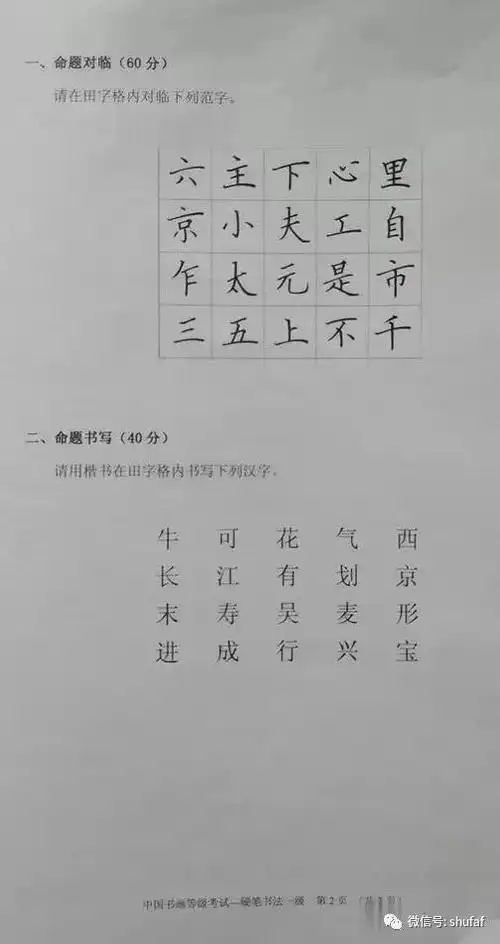 一、命题对临（60分）
请在田字格内对临下列范字。
六主下心里
京小夫工自
乍太元是市
三五上不千
二、命题书写（40分）
请用楷书在田字格内书写下列汉字。
牛 可 花 气 西
长 江 有 划 京
末 寿 吴 麦 形
进 成 行 兴 宝
中国书画等级考试—硬笔书法一级 第2页
微信号: shufaf